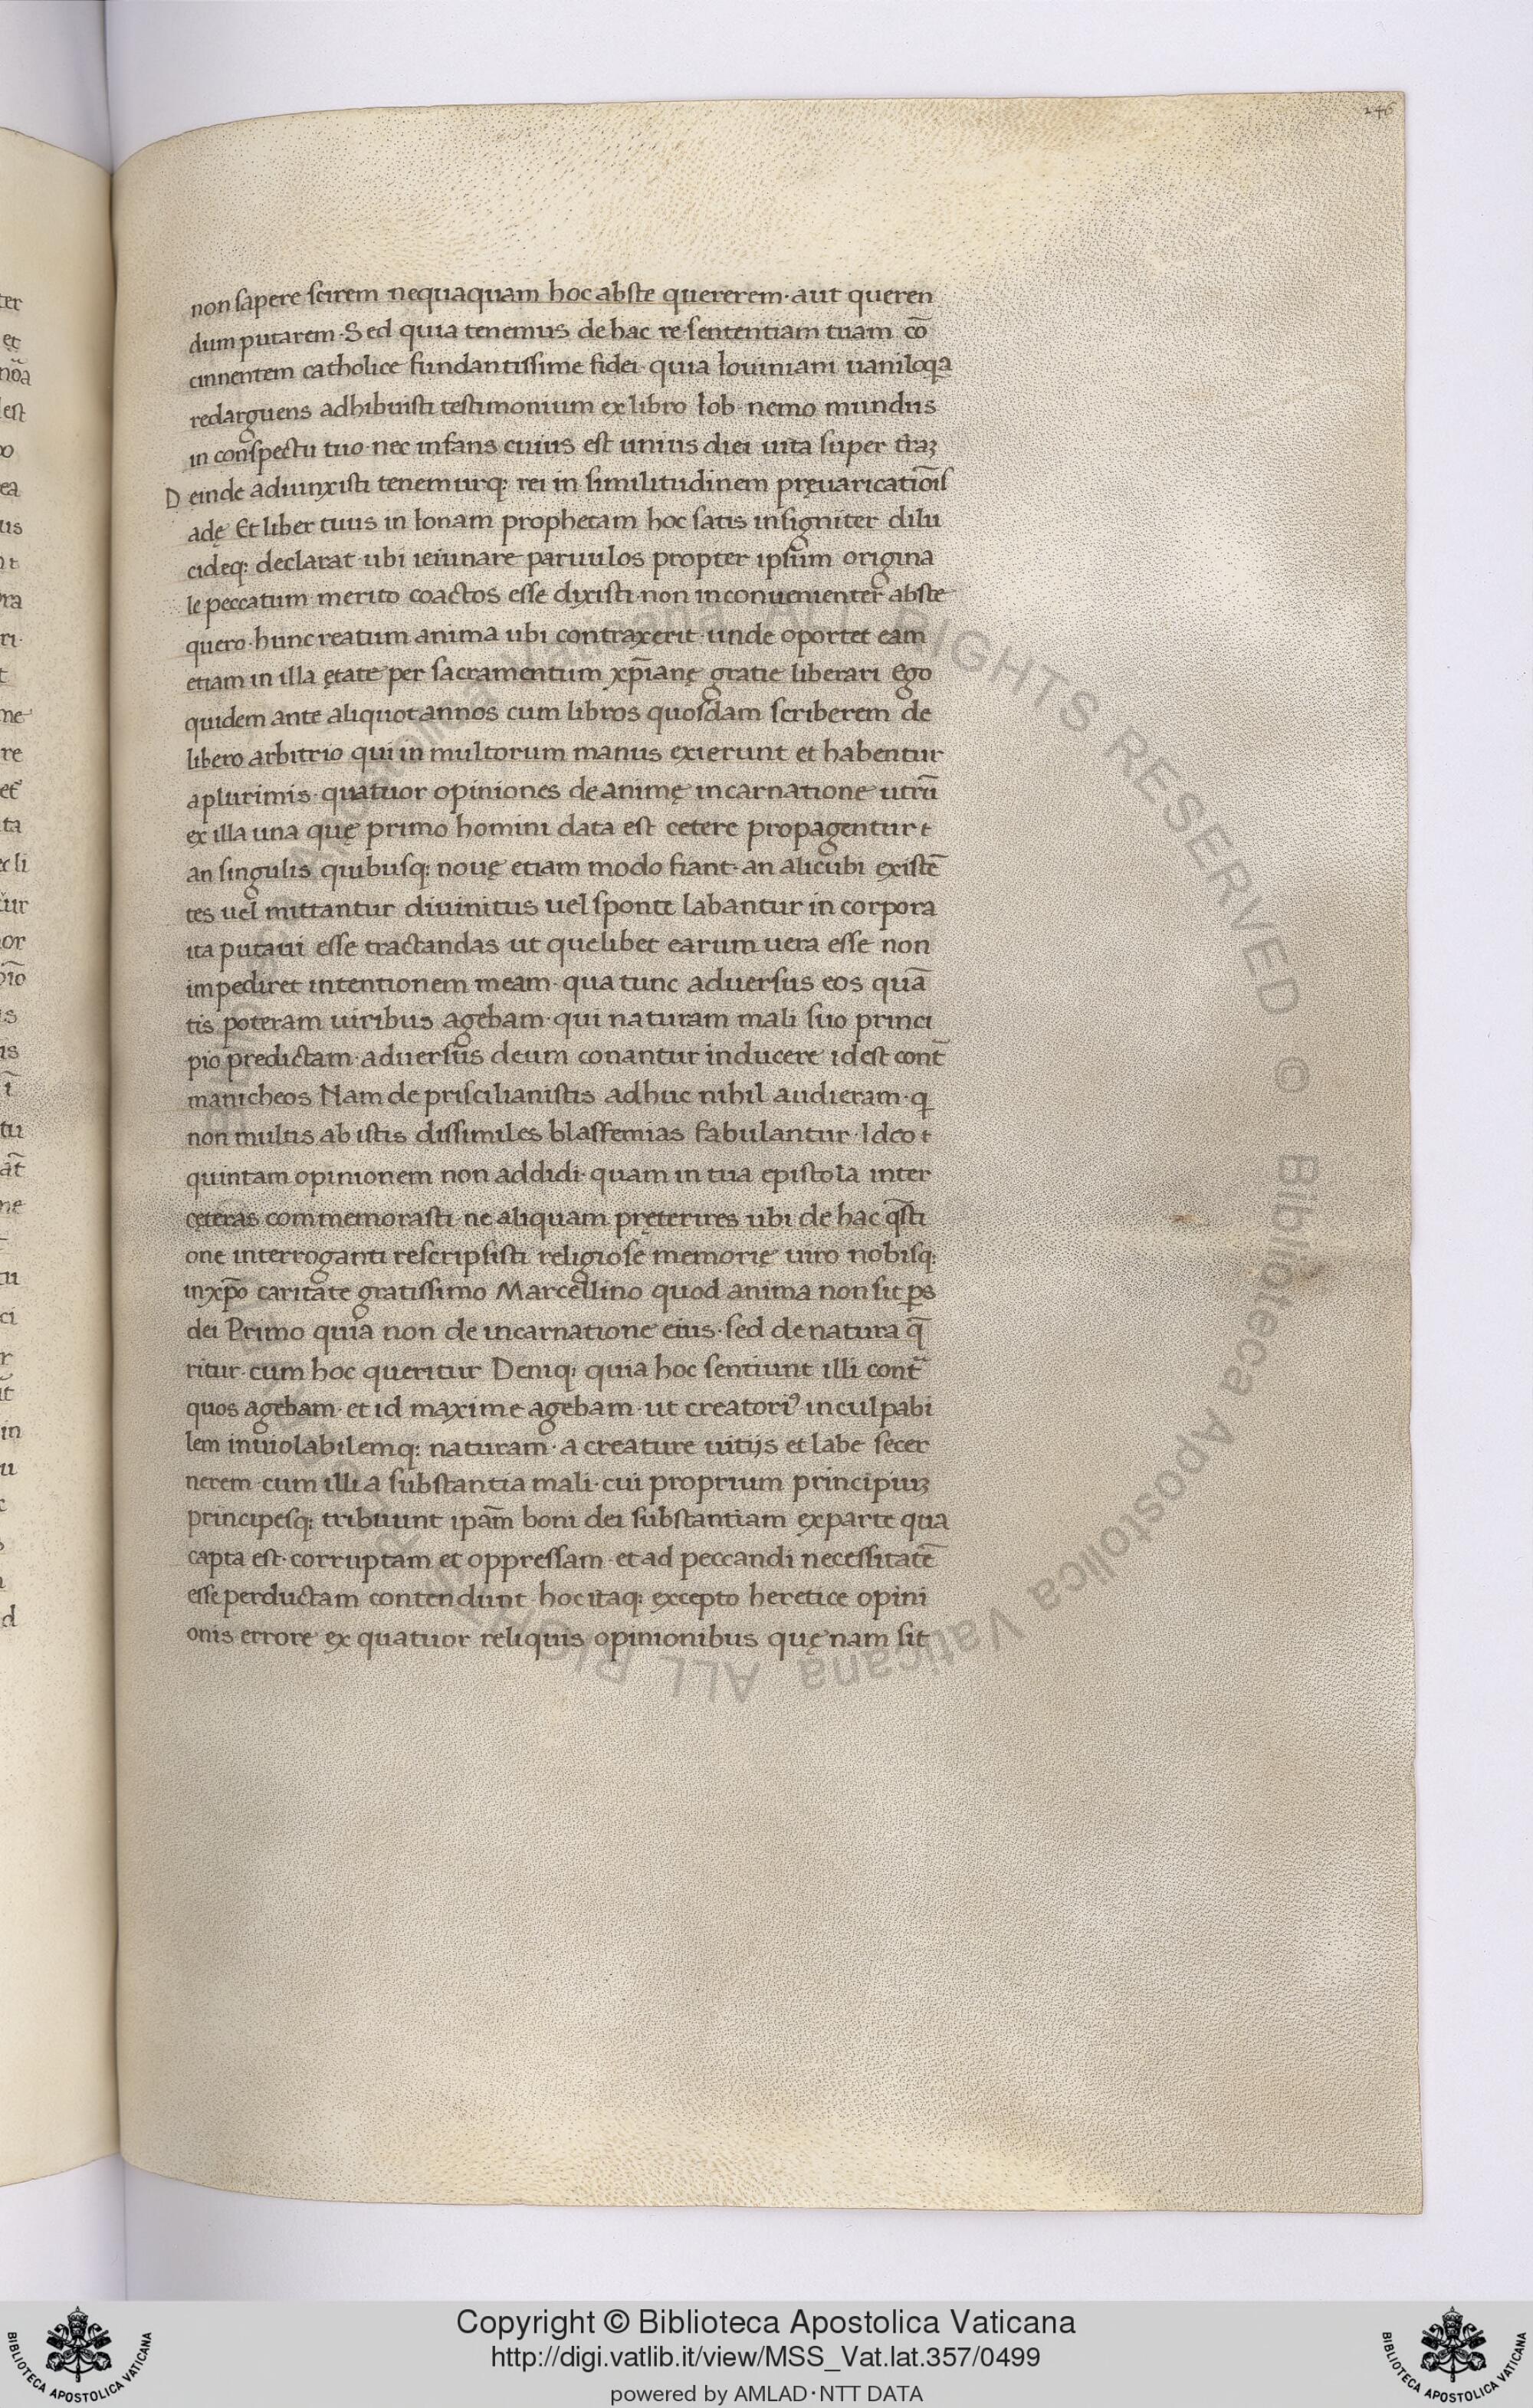 246
non sapere scirem nequaquam hoc abste quererem· aut queren
dum putarem· Sed quia tenemus de hac re sententiam tuam cō
cinnentem catholice fundantissime fidei· quia Iouiniani uaniloqa
redarguens adhibuisti testimonium ex libro Iob· nemo mundus
in conspectu tuo· nec infans cuius est unius diei uita super traꝫ
Deinde adiunxisti tenemurq: rei in similitudinem pręuaricatiōis
adę Et liber tuus in Ionam prophetam hoc satis insigniter dilu
cideq: declarat· ubi ieiunare paruulos propter ipsum origina
le peccatum merito coactos esse dixisti· non inconuenienter abste
quero· hunc reatum anima ubi contraxerit· unde oportet eam
etiam in illa ętate per sacramentum xp̄ianę gratie liberari Ego
quidem ante aliquot annos cum libros quosdam scriberem de
libero arbitrio qui in multorum manus exierunt et habentur
a plurimis· quatuor opiniones de animę incarnatione utrū
ex illa una quę primo homini data est cetere propagentur t
an singulis quibusq: nouę etiam modo fiant· an alicubi existē
tes uel mittantur diuinitus uel sponte labantur in corpora
ita putaui esse tractandas ut quelibet earum uera esse non
impediret intentionem meam· qua tunc aduersus eos quā
tis poteram uiribus agebam· qui naturam mali suo princi
pio predictam· aduersus deum conantur inducere id est cont̄
manicheos Nam de priscilianistis adhuc nihil audieram· q
non multis ab istis dissimiles blasfemias fabulantur· Ideo t
quintam opinionem non addidi· quam in tua epistola inter
cęteras commemorasti· ne aliquam pręterires ubi de hac q̄sti
one interroganti rescripsisti religiose memorię uiro nobisq:
in xp̄o caritate gratissimo Marcellino quod anima non sit ꝑs
dei Primo quia non de incarnatione eius· sed de natura q̄
ritur· cum hoc queritur Deniq: quia hoc sentiunt illi cont̄
quos agebam· et id maxime agebam· ut creatoriꝰ inculpabi
lem inuiolabilemq: naturam· a creature uitijs et labe secer
nerem· cum illi a substantia mali· cui proprium principiuꝫ
principesq: tribuunt ipām boni dei substantiam ex parte qua
capta est· corruptam et oppressam· et ad peccandi necessitatē
esse perductam contendunt· hoc itaq: excepto heretice opini
onis errore ex quatuor reliquis opinionibus quę nam sit
© Biblioteca Apostolica Vaticana ALL RIGHTS RESERVED © Biblioteca Apostolica Vaticana ALL RIGHTS RESERVED
Copyright © Biblioteca Apostolica Vaticana
http://digi.vatlib.it/view/MSS_Vat.lat.357/0499
powered by AMLAD·NTT DATA
BIBLIOTECA APOSTOLICA VATICANA
BIBLIOTECA APOSTOLICA VATICANA